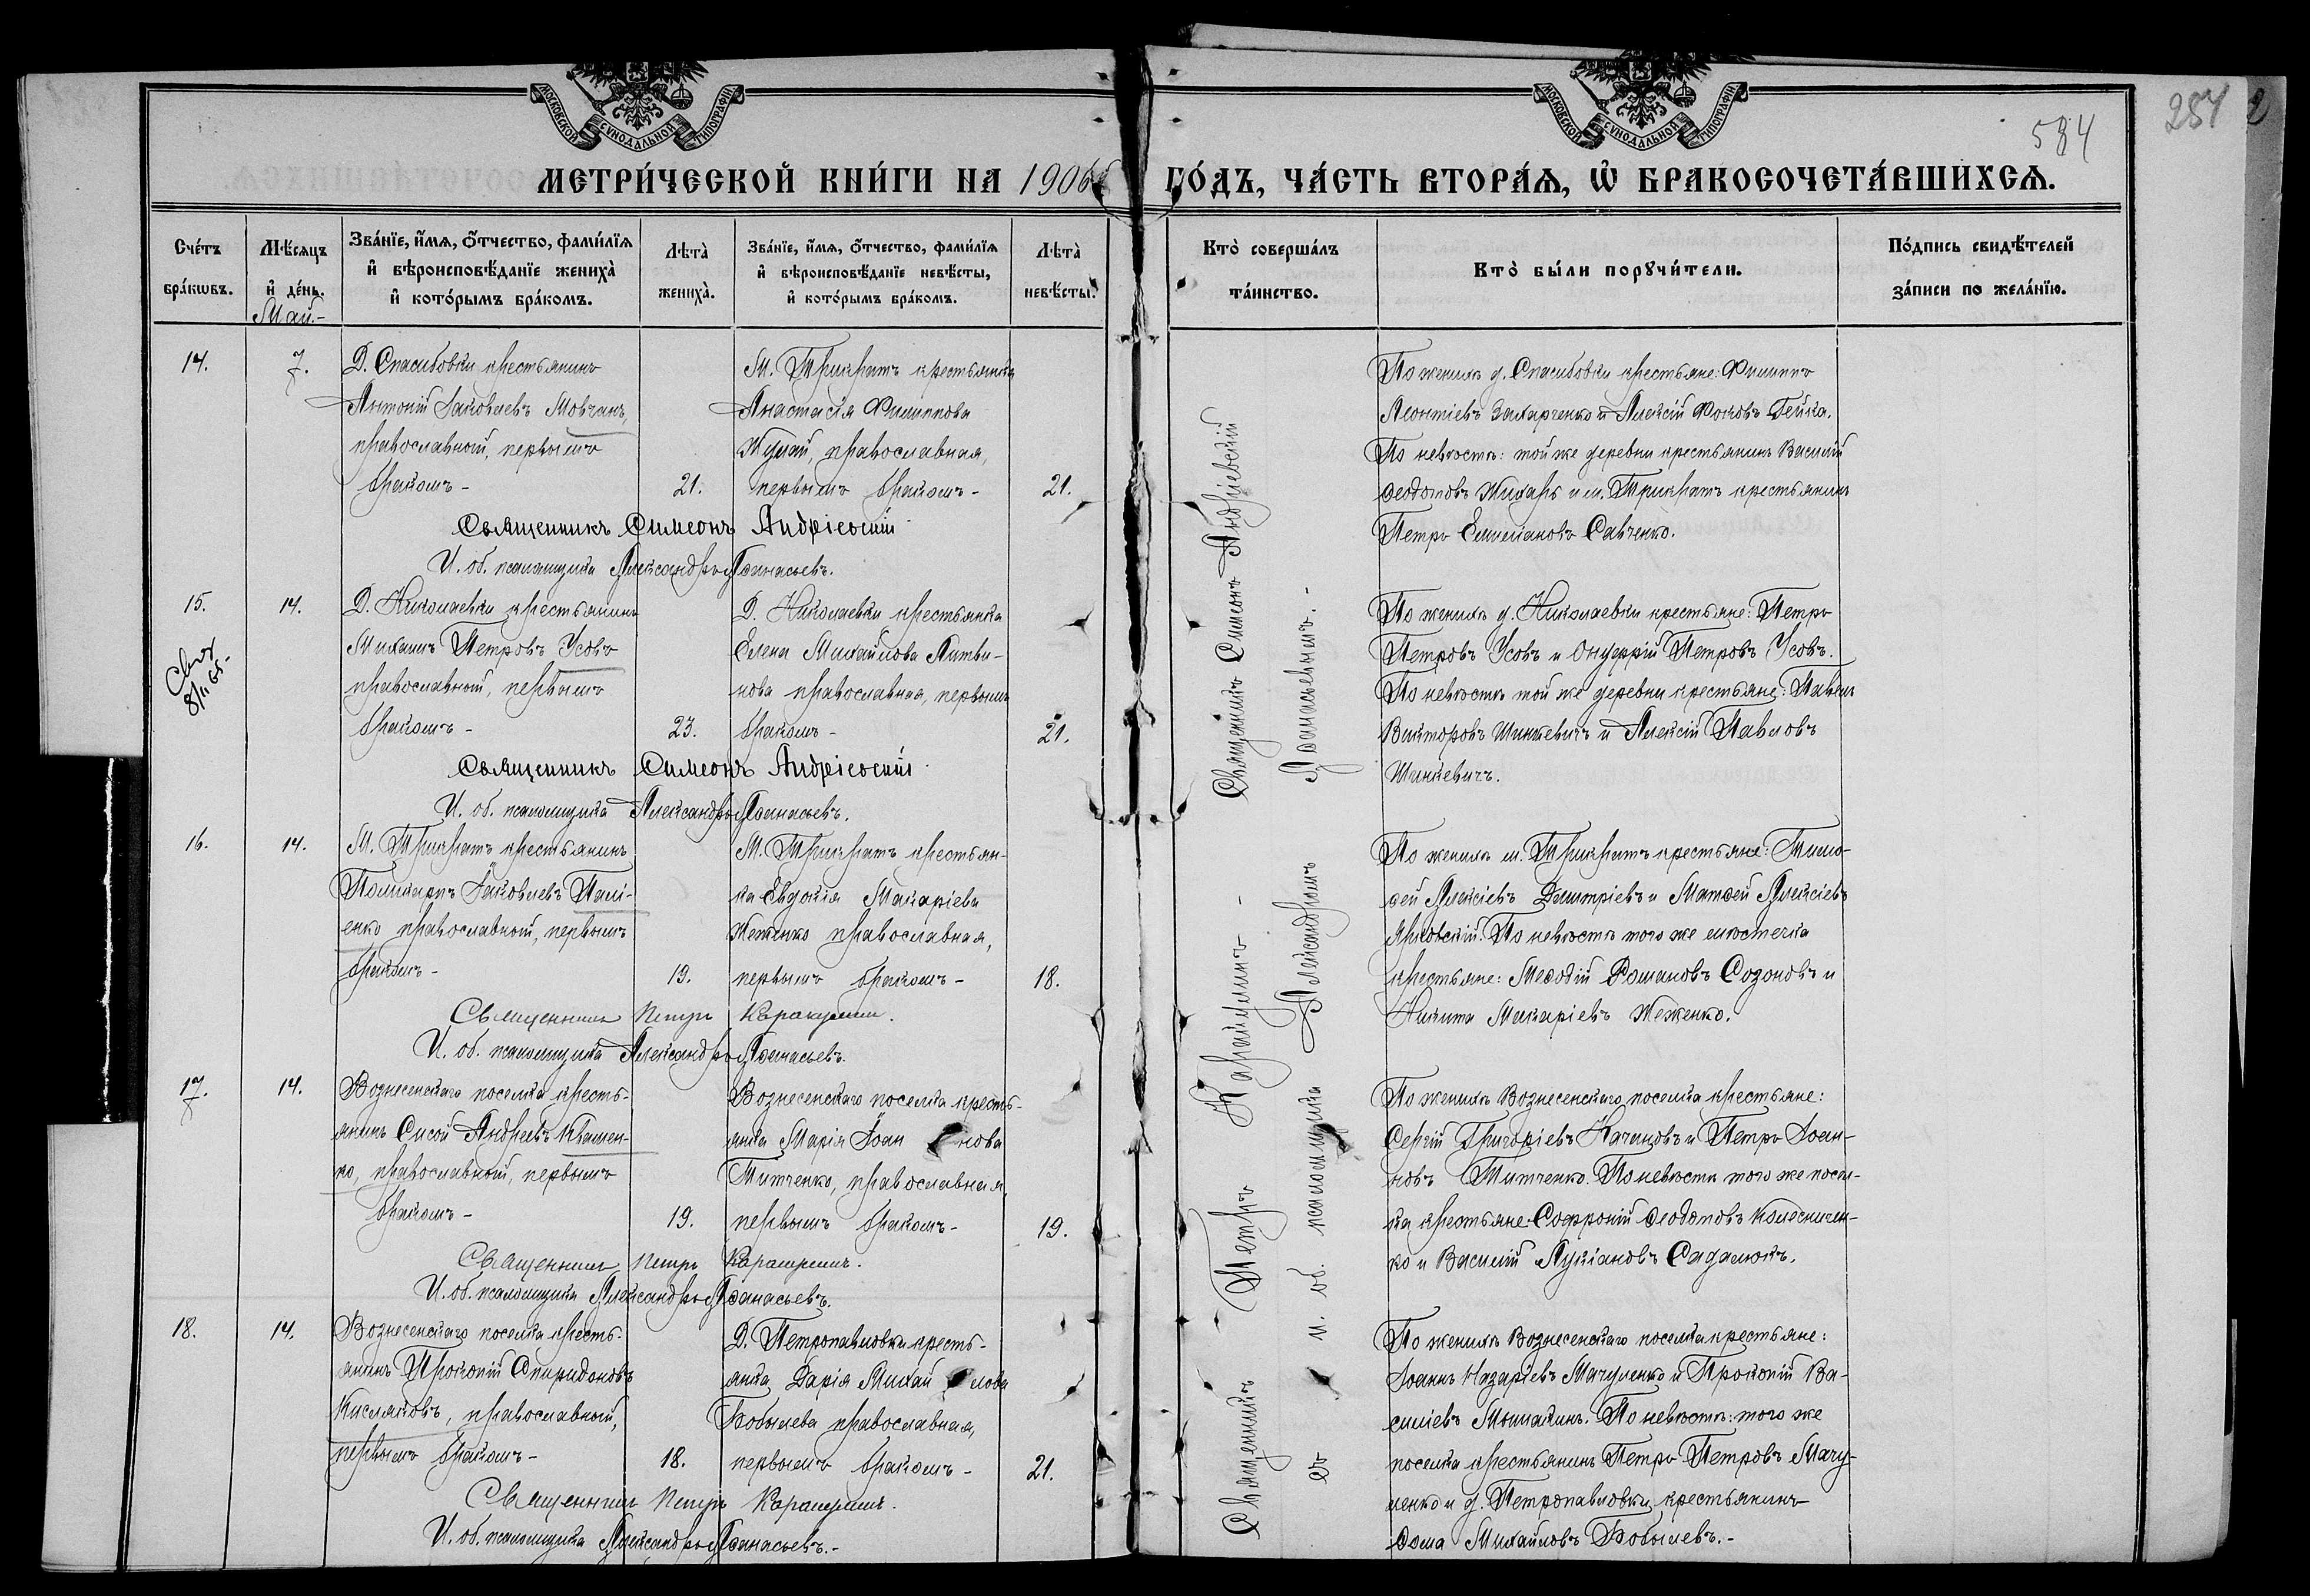 МОСКОВСКОЙ СѴНОДАЛЬНОЙ ТИПОГРАФІИ
МОСКОВСКОЙ СѴНОДАЛЬНОЙ ТИПОГРАФІИ
584
287
2
МЕТРИ́ЧЕСКОЙ КНИ́ГИ НА 1906й ГО́ДЪ, ЧА́СТЬ ВТОРА́Ѧ, Ѡ҆ БРАКОСОЧЕТА́ВШИХСѦ.
Сче́тъ бра́кѡвъ.
Мѣ́сѧцъ и҆ де́нь.
Зва́нїе, и҆́мѧ, ѻ҆́тчество, фами́лїѧ и҆ вѣроисповѣ́данїе жениха̀ и҆ кото́рымъ бра́комъ.
Лѣ̑та̀ жениха̀.
Зва́нїе, и҆́мѧ, ѻ҆́тчество, фами́лїѧ и҆ вѣроисповѣ́данїе невѣ́сты, и҆ кото́рымъ бра́комъ.
Лѣ̑та̀ невѣ́сты.
Кто̀ соверша́лъ та́инство.
Кто̀ бы́ли порꙋчи́тели.
По́дпись свидѣ́телей за́писи по жела́нїю.
Май.-
14.
7.
Д. Спасибовки крестьянинъ
Антоній Іаковлевъ Мовчанъ,
православный, первымъ
бракомъ -
21.
М. Трикратъ крестьянка
Анастасія Филиппова
Жулай, православная,
первымъ бракомъ -
21.
По женихѣ д. Спасибовки крестьяне: Филиппъ
Леонтіевъ Захарченко и Алексій Фоковъ Гейка.
По невѣстѣ: той же деревни крестьянинъ Василій
Ѳеодотовъ Жихарь и м. Трикратъ крестьянинъ
Петръ Емиліановъ Савченко.
Священникъ Симеонъ Андріевскій
И. об. псаломщика Александръ Аѳанасьевъ.
15.
14.
Д. Николаевки крестьянинъ
Михаилъ Петровъ Усовъ
православный, первымъ
бракомъ -
23.
Д. Николаевки крестьянка
Елена Михайлова Литви-
нова православная, первымъ
бракомъ -
21.
По женихѣ д. Николаевки крестьяне: Петръ
Петровъ Усовъ и Онуфрій Петровъ Усовъ.
По невѣстѣ той же деревни крестьяне: Павелъ
Викторовъ Шинкевичъ и Алексій Павловъ
Шинкевичъ.
Священникъ Симеонъ Андріевскій
И. об. псаломщика Александръ Аѳанасьевъ.
16.
14.
М. Трикратъ крестьянинъ
Поликарпъ Іаковлевъ Палі-
енко православный, первымъ
бракомъ -
19.
М. Трикратъ крестьян-
ка Евдокія Макаріева
Жеженко православная,
первымъ бракомъ -
18.
По женихѣ м. Трикратъ крестьяне: Тимо-
ѳей Алексіевъ Димитріевъ и Матѳей Алексіевъ
Ярковскій. По невѣстѣ того же мѣстечка
крестьяне: Меѳодій Романовъ Созоновъ и
Никита Макаріевъ Жеженко.
Священникъ Петръ Карашулинъ.
И. об. псаломщика Александръ Аѳанасьевъ.
17.
14.
Вознесенскаго поселка кресть-
янинъ Сисой Андреевъ Квашен-
ко, православный, первымъ
бракомъ -
19.
Вознесенскаго поселка кресть-
янка Марія Іоан нова
Титченко, православная,
первымъ бракомъ -
19.
По женихѣ Вознесенскаго поселка крестьяне:
Сергій Григоріевъ Качановъ и Петръ Іоан-
новъ Титченко. По невѣстѣ того же посел-
ка крестьяне: Софроній Ѳеодотовъ Колесничен-
ко и Василій Лукіановъ Садалюкъ.
Священникъ Петръ
И. об. псаломщика Александръ Аѳанасьевъ.
18.
14.
Вознесенскаго поселка кресть-
янинъ Прокопій Спиридоновъ
Кисляковъ, православный,
первымъ бракомъ -
18.
Д. Петропавловки кресть-
янка Дарія Михай лова
Бобылева православная,
первымъ бракомъ -
21.
По женихѣ Вознесенскаго поселка крестьяне:
Іоаннъ Назаріевъ Мачуленко и Прокопій Ва-
силіевъ Мошакинъ. По невѣстѣ: того же
поселка крестьянинъ Петръ Петровъ Мачу-
ленко и д. Петропавловки крестьянинъ
Ѳома Михайловъ Бобылевъ.-
Священникъ Петръ
И. об. псаломщика Александръ Аѳанасьевъ.-
Священникъ Симеонъ Андріевскій
Священникъ Петръ
съ и. об. псаломщика Александромъ Аѳанасьевымъ.-